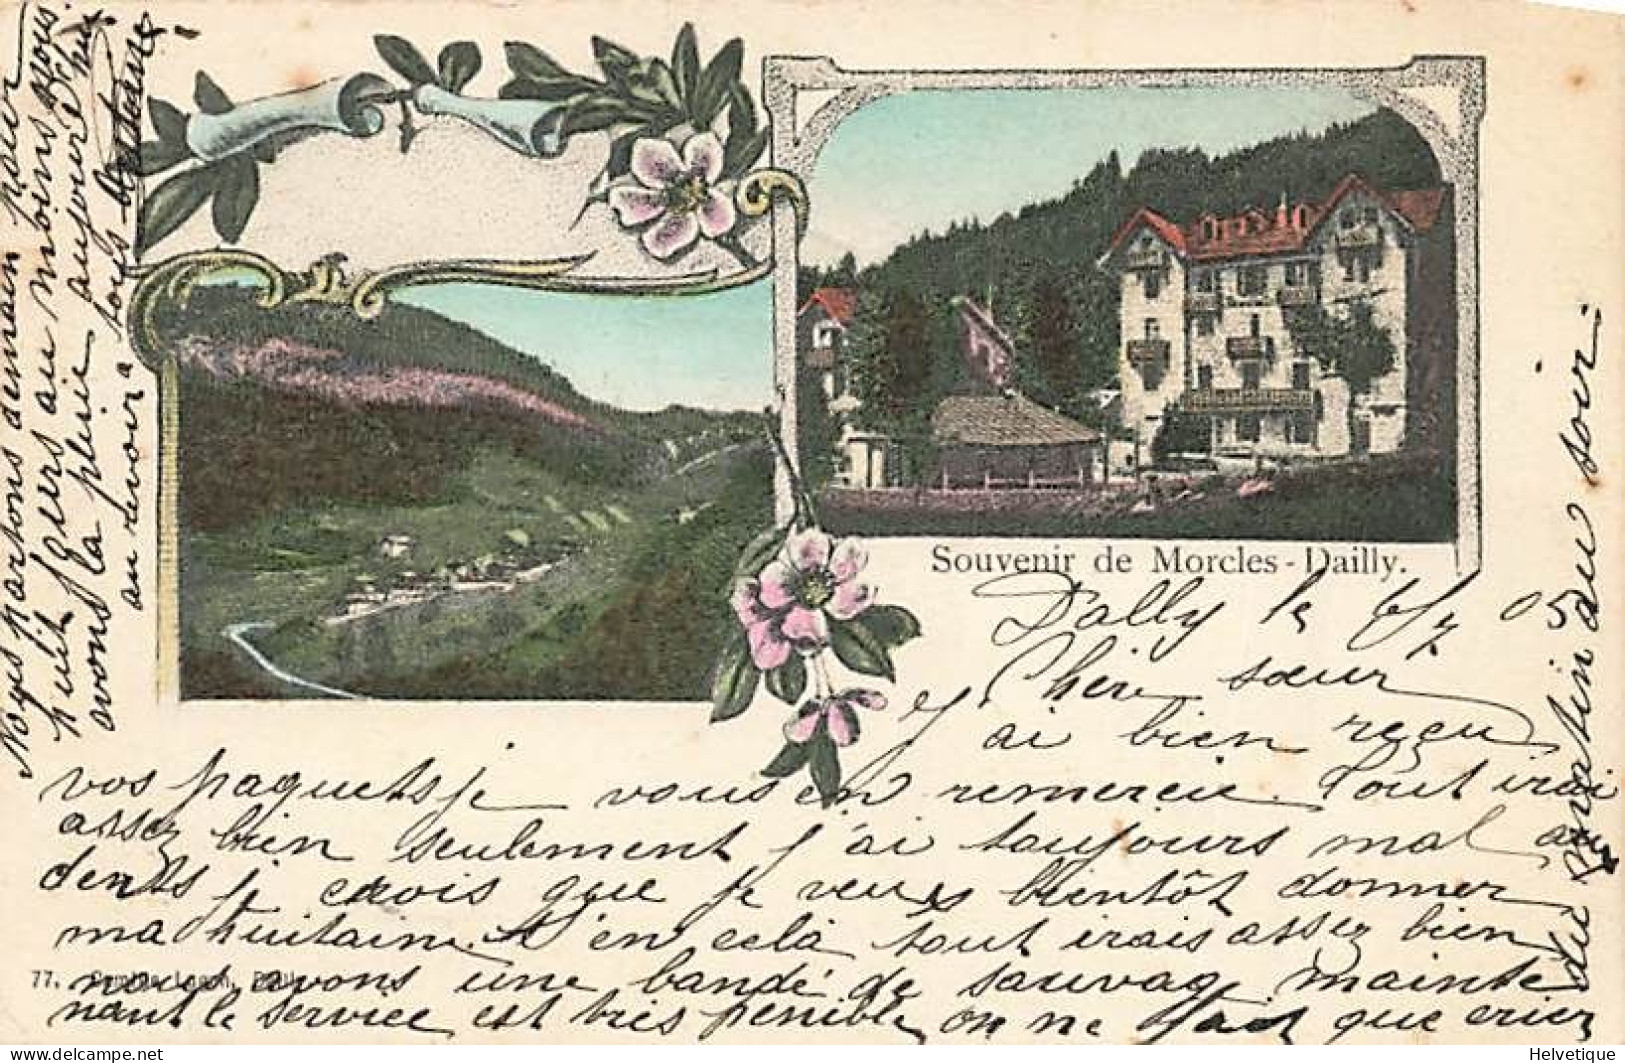 Souvenir de Morcles-Dailly.
Dailly le 6/7 05
Chère sœur
J'ai bien reçu
vos paquets je vous en remercie. Tout irai
assez bien seulement j'ai toujours mal au
dents je crois que je veues bientôt donner
ma huitaine. S'en celà tout irais assez bien
nous avons une bande de sauvag mainte
nant le service est très penible on ne fait que crier
du matin au soir.
Nous partons demain pour
huit jours au moins sous
avons la pluie aujourd'hui
au revoir
77.
delcampe.net
Helvetique